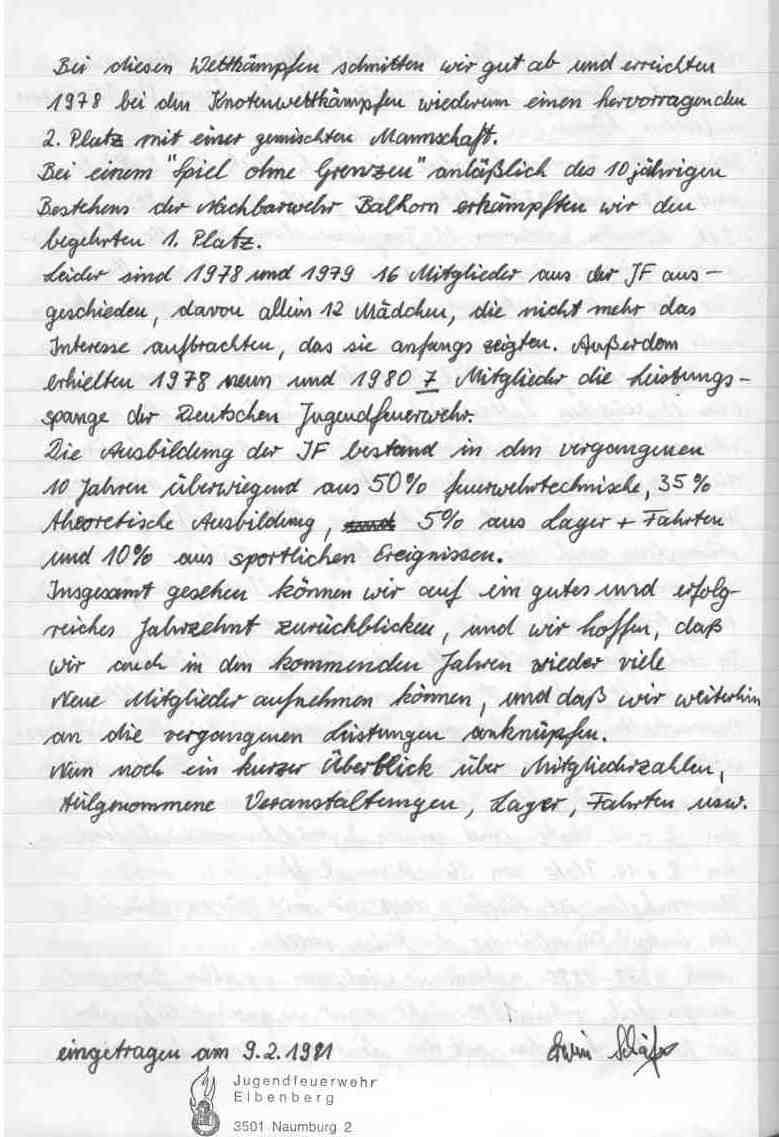 Bei diesen Wettkämpfen schnitten wir gut ab und erreichten
1978 bei den Knotenwettkämpfen wiederum einen hervorragenden
2. Platz mit einer gemischten Mannschaft.
Bei einem "Spiel ohne Grenzen" anläßlich des 10 jährigen
Bestehens der Nachbarwehr Balhorn erkämpften wir den
begehrten 1. Platz.
Leider sind 1978 und 1979 16 Mitglieder aus der JF aus-
geschieden, davon allein 12 Mädchen, die nicht mehr das
Interesse aufbrachten, das sie anfangs zeigten. Außerdem
erhielten 1978 neun und 1980 7 Mitglieder die Leistungs-
spange der Deutschen Jugendfeuerwehr.
Die Ausbildung der JF bestand in den vergangenen
10 Jahren überwiegend aus 50% feuerwehrtechnische, 35%
theoretische Ausbildung, und 5% aus Lager + Fahrten
und 10% aus sportlichen Ereignissen.
Insgesamt gesehen können wir auf ein gutes und erfolg-
reiches Jahrzehnt zurückblicken, und wir hoffen, daß
wir auch in den kommenden Jahren wieder viele
Neue Mitglieder aufnehmen können, und daß wir weiterhin
an die vergangenen Leistungen anknüpfen.
Nun noch ein kurzer Überblick über Mitgliederzahlen,
teilgenommene Veranstaltungen, Lager, Fahrten usw.
eingetragen am 9.2.1981 Erwin Schäfer
Jugendfeuerwehr
Elbenberg
3501 Naumburg 2